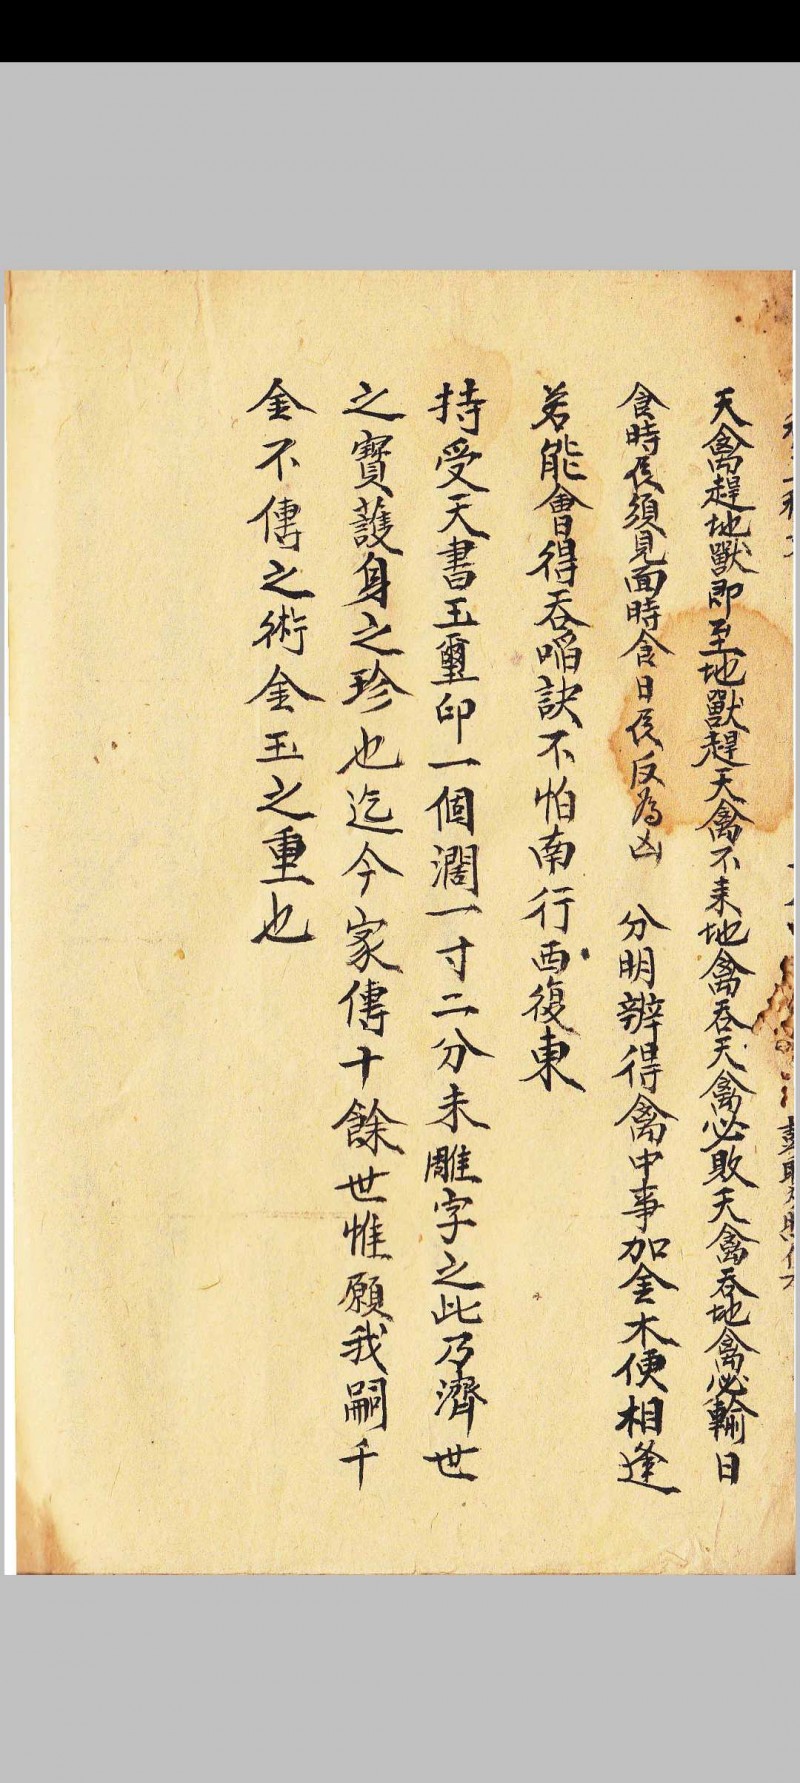 天禽趕地獸即至地獸趕天禽不来地禽吞天禽必敗天禽吞地禽必輸日
食時侯須見面時食日侯反為凶　分明辨得禽中事加金木便相逢
若能會得吞啗訣不怕南行西復東
持受天書玉璽印一個濶一寸二分未雕字之此乃濟世
之寳護身之珍也迄今家傳十餘世惟願我嗣千
金不傳之術金玉之重也